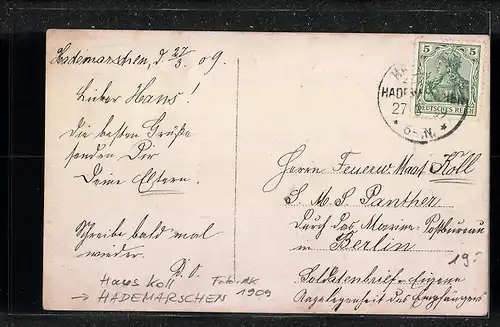 Hademarschen, d. 27/3. 09.
Lieber Hans!
Die besten Grüße
senden Dir
Deine Eltern.
Schreibe bald mal
wieder.
D. O.
Haus Koll
→ HADEMARSCHEN
Foto-AK
1909
5 5
DEUTSCHES REICH
HADEMARSCHEN
27
* 6-7N. *
Herrn Feuerw. Maat Koll
S. M. S. Panther
Durch das Marine-Postbureau
in Berlin
19.-
Soldatenbrief. Eigene
Angelegenheit des Empfängers